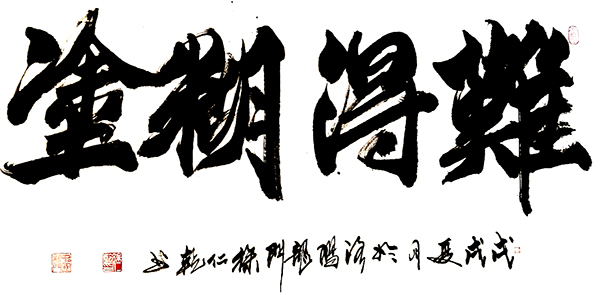 難得糊塗
戊戌夏月於洛陽龍門仁乾书